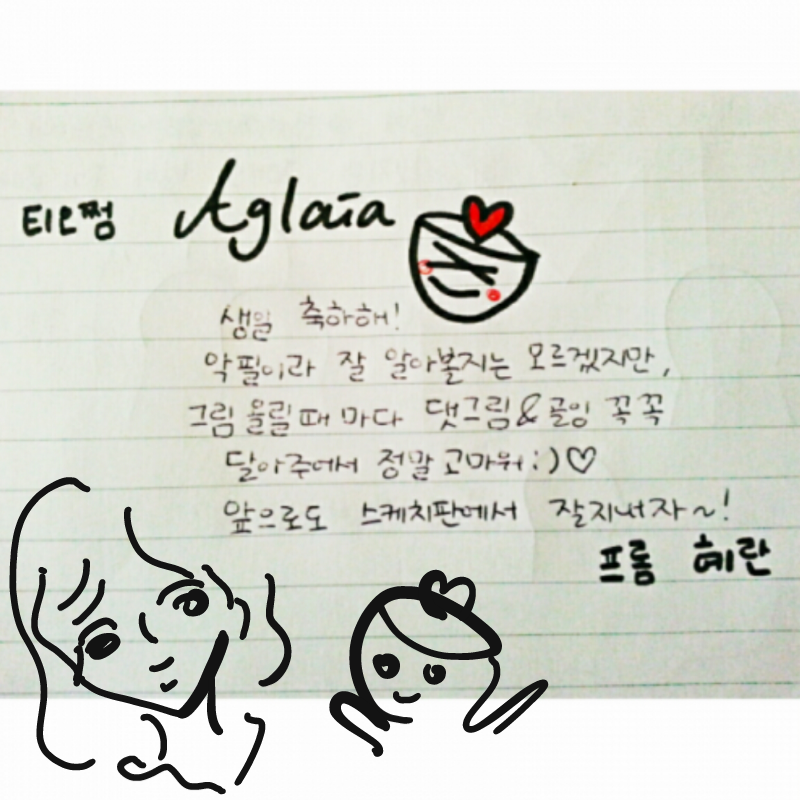 Aglaia
생일 축하해!
악필이라 잘 알아볼지는 모르겠지만,
그림 올릴때 마다 댓그림& 꼭꼭
달아주어서 정말 고마워:)♡
앞으로도 스케치판에서 잘지내자~!
프롬 혜란